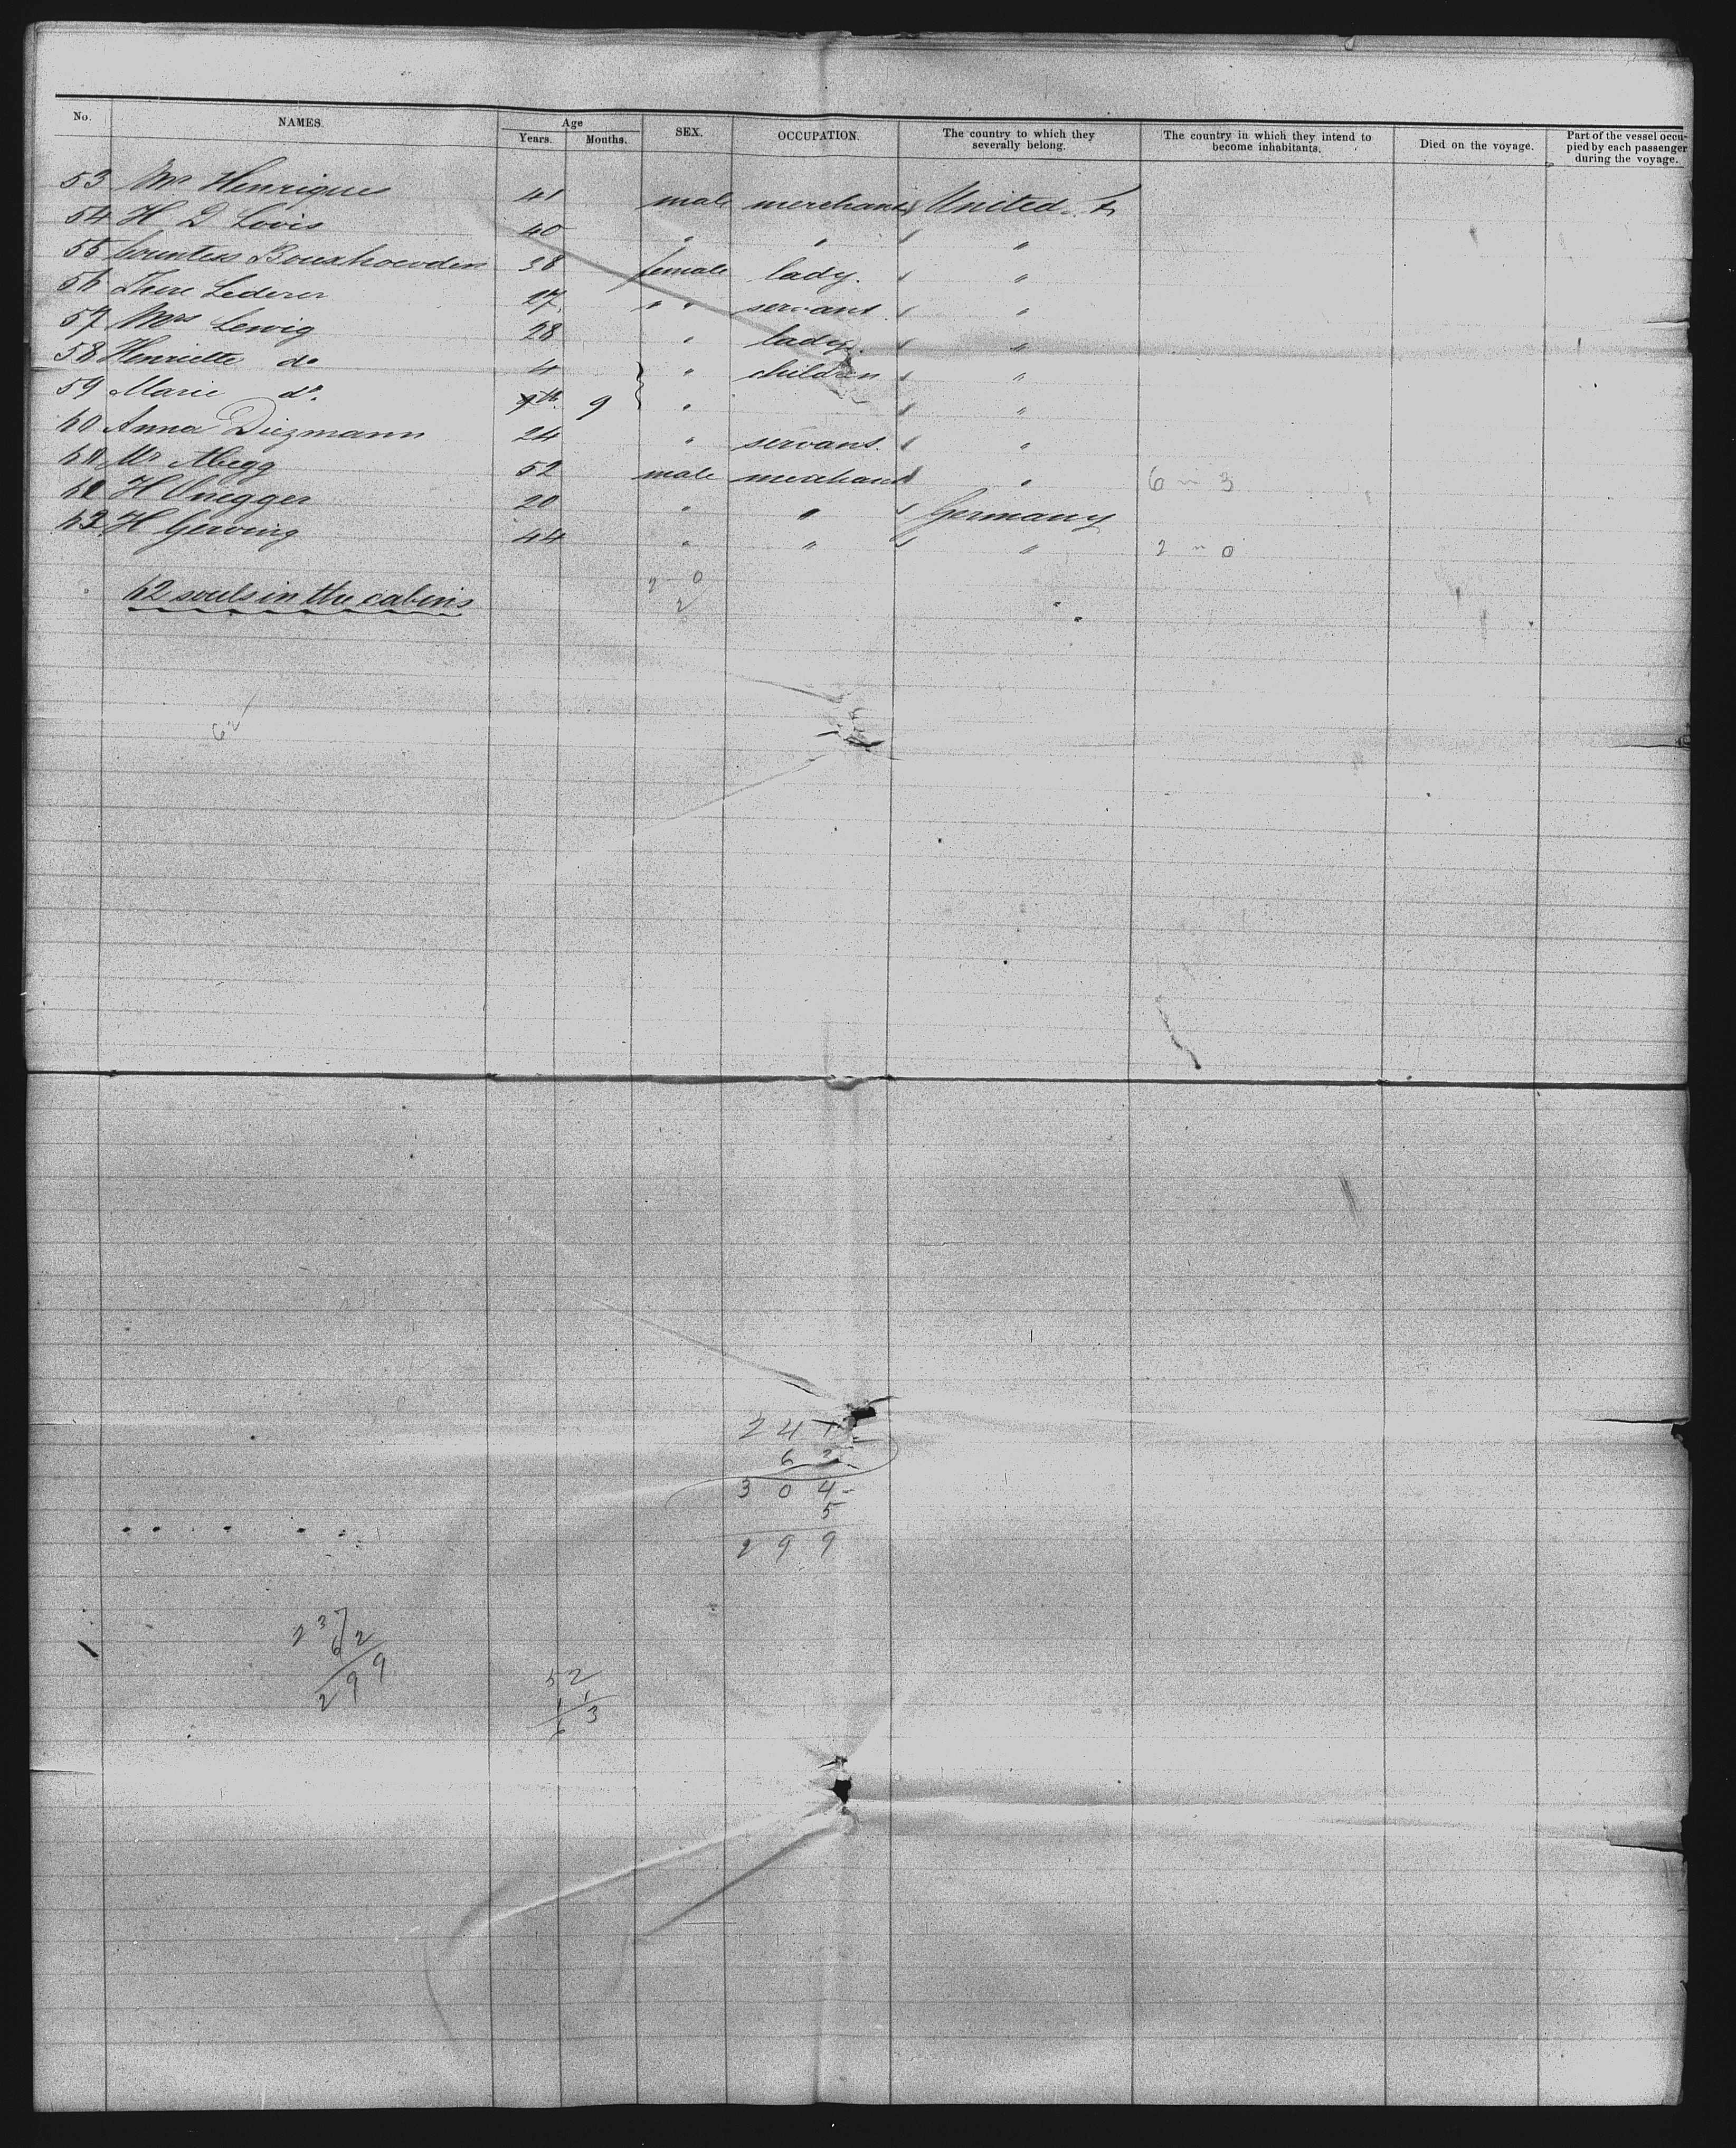 No. NAMES. Age Years. Months. SEX. OCCUPATION. The country to which they severally belong. The country in which they intend to become inhabitants. Died on the voyage. Part of the vessel occupied by each passenger during the voyage.
53 Mr Henriques 41 male merchant United St
54 H D Lovis 40 " " "
55 Countess Bouxhowden 38 female lady. "
56 Ther Lederer 27 " " servant "
57 Mrs Lewig 28 " lady. "
58 Henriette do 4 " children "
59 Marie do. 9 " "
60 Anna Diezmann 24 " servant. "
61 Mr Abegg 52 male merchant " 6 " 3
62 H Onegger 20 " " Germany
63 H Gerving 44 " " " 2 " 0
2 0
2
62 souls in the cabins
62
24
6 2
3 0 4
5
2 9 9
2 3 7
6 2
2 9 9
5 2
1 1
6 3